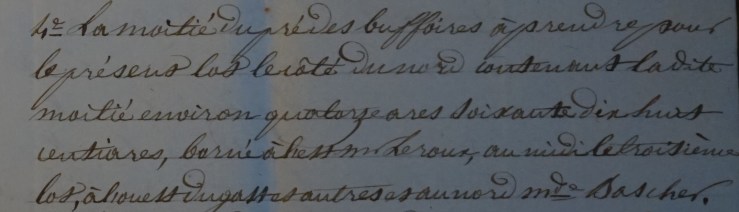 4° La moitié du pré des buffoires à prendre pour
le présent lot le côté du nord contenant ladite
moitié environ quatorze ares soixante dix huit
centiares, borné à l'est Mr Leroux, au midi le troisième
lot, à l'ouest et autres et au nord Mde Bascher.